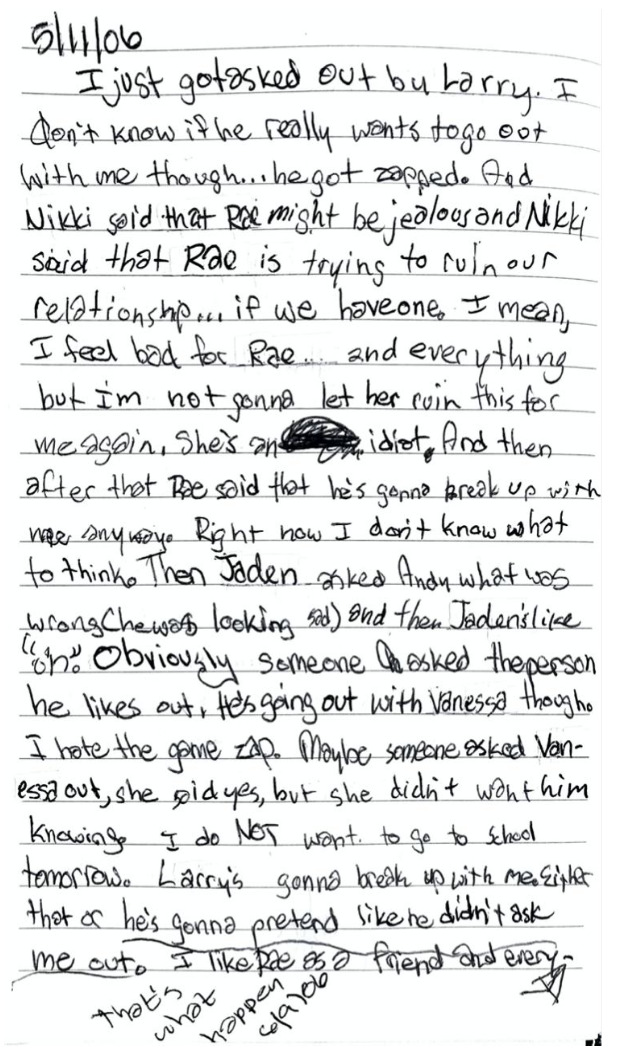 5/11/06
I just got asked out by Larry. I
don't know if he really wants to go out
with me though... he got zapped. And
Nikki said that Rae might be jealous and Nikki
said that Rae is trying to ruin our
relationship... if we have one. I mean,
I feel bad for Rae... and everything
but I'm not gonna let her ruin this for
me again. She's an idiot. And then
after that Rae said that he's gonna break up with
me anyway. Right now I don't know what
to think. Then Jaden asked Andy what was
wrong (he was looking sad) and then Jaden's like
"oh." Obviously someone asked the person
he likes out. He's going out with Vanessa though.
I hate the game zap. Maybe someone asked Van-
essa out, she said yes, but she didn't want him
knowing. I do NOT want to go to school
tomorrow. Larry's gonna break up with me. Either
that or he's gonna pretend like he didn't ask
me out. I like Rae as a friend and every-
that's
what
happen